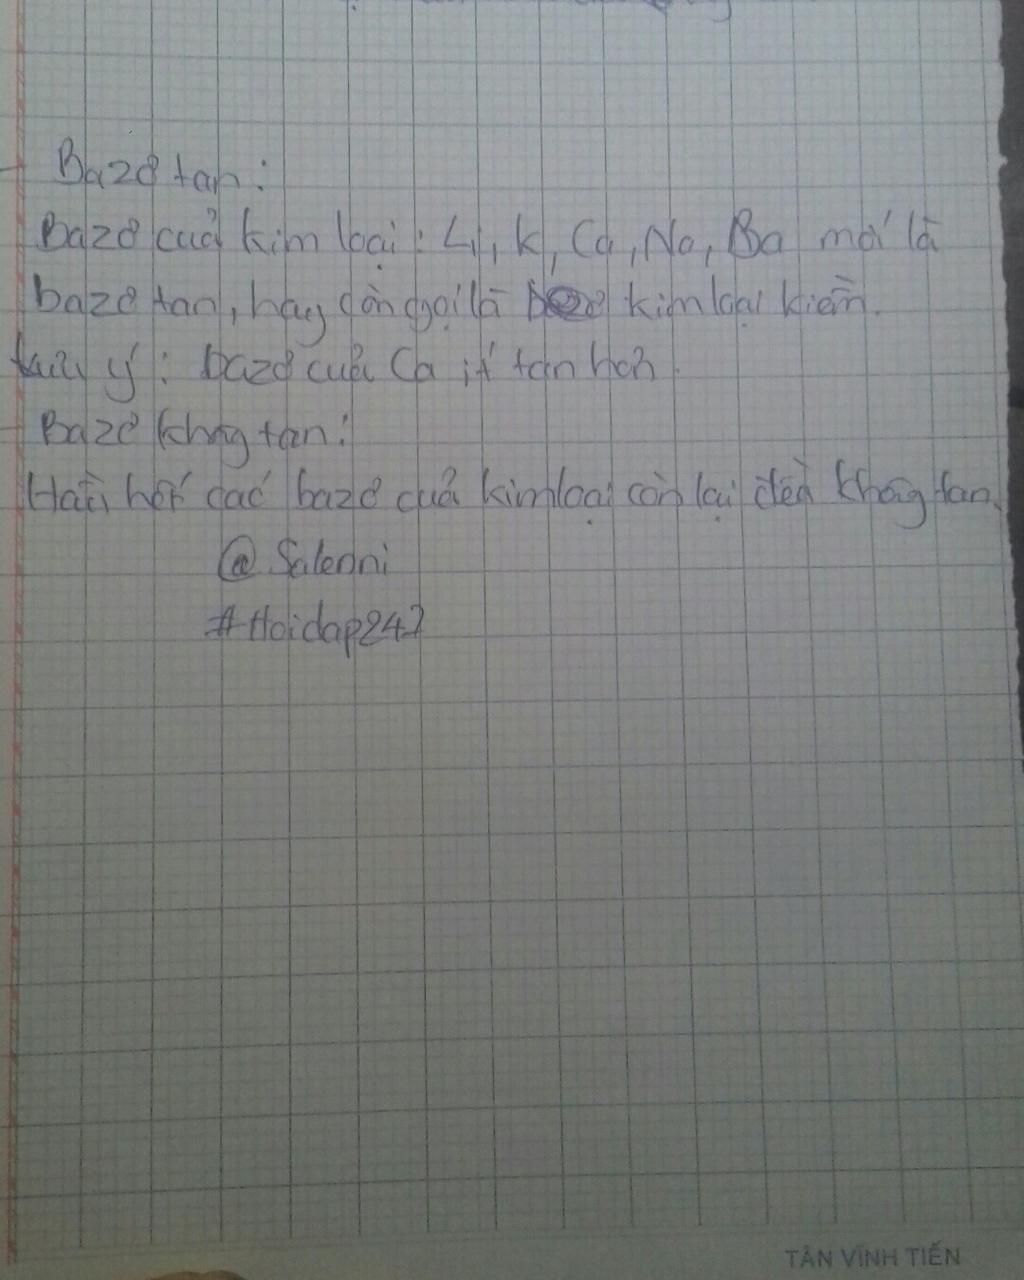 - Bazơ tan:
Bazơ của kim loại: Li, K, Ca, Na, Ba mới là
bazơ tan, hay còn gọi là kim loại kiềm.
Lưu ý: bazơ của Ca ít tan hơn.
- Bazơ không tan:
Hầu hết các bazơ của kim loại còn lại đều không tan.
@Salenni
#Hoidap247
TÂN VĨNH TIẾN